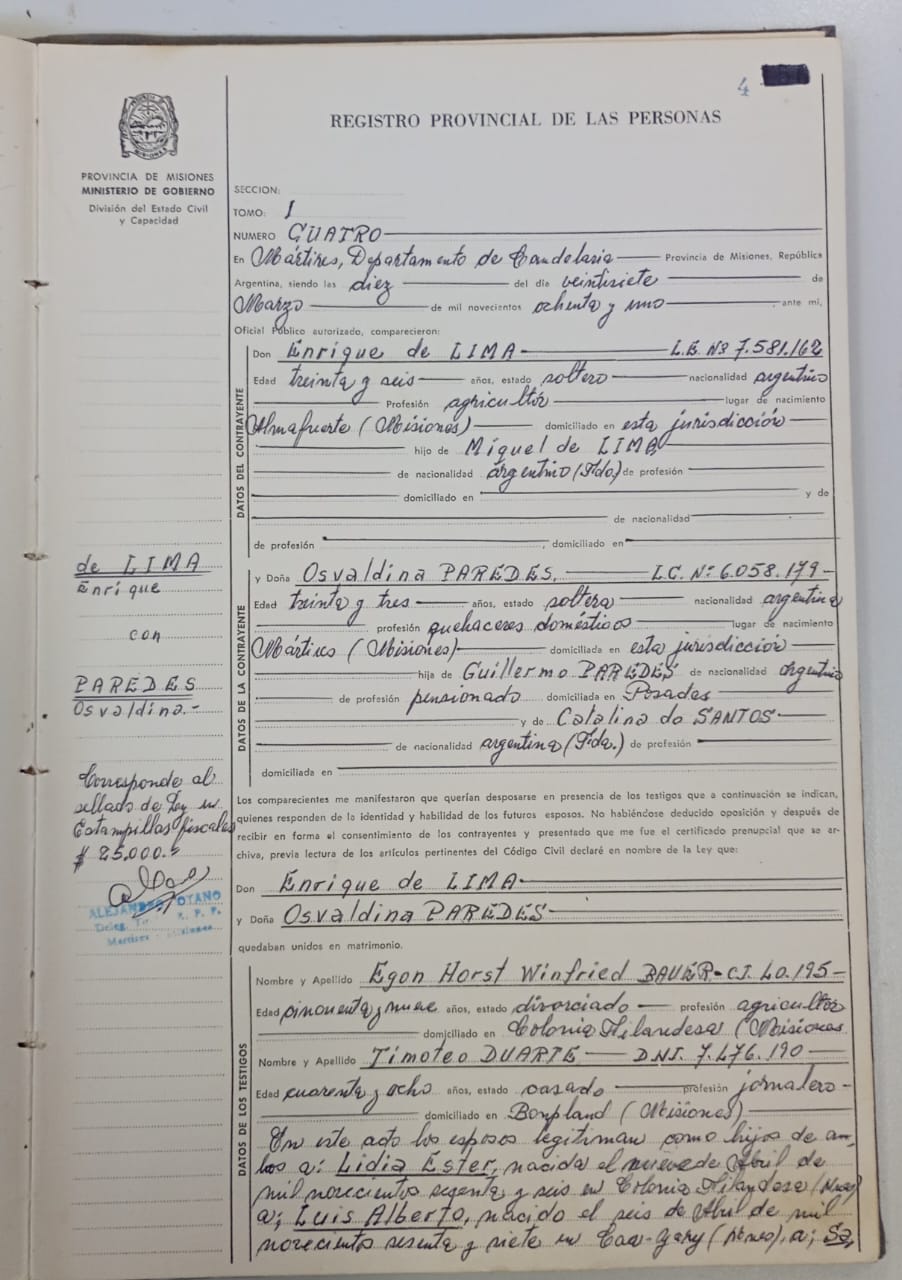 4
REGISTRO PROVINCIAL DE LAS PERSONAS
PROVINCIA DE MISIONES
MINISTERIO DE GOBIERNO
División del Estado Civil
y Capacidad
SECCION:
TOMO: I
NUMERO CUATRO
En Mártires, Departamento de Candelaria Provincia de Misiones, República
Argentina, siendo las diez del día veintisiete de
Marzo de mil novecientos ochenta y uno ante mí,
Oficial Público autorizado, comparecieron:
DATOS DEL CONTRAYENTE
Don Enrique de LIMA L.E. Nº 7.581.162
Edad treinta y seis años, estado soltero nacionalidad argentino
Profesión agricultor lugar de nacimiento
Almafuerte (Misiones) domiciliado en esta jurisdicción
hijo de Miguel de LIMA
de nacionalidad argentino (Fdo.) de profesión
domiciliado en y de
de nacionalidad
de profesión , domiciliado en
de LIMA
Enrique
con
PAREDES
Osvaldina.-
DATOS DE LA CONTRAYENTE
y Doña Osvaldina PAREDES. L.C. Nº 6.058.179
Edad treinta y tres años, estado soltera nacionalidad argentina
profesión quehaceres domésticos lugar de nacimiento
Mártires (Misiones) domiciliada en esta jurisdicción
hija de Guillermo PAREDES de nacionalidad argentino
de profesión pensionado domiciliada en Posadas
y de Catalina do SANTOS
de nacionalidad argentina (Fda.) de profesión
domiciliada en
Corresponde al
sellado de Ley en
Estampillas fiscales
$ 25.000.-
ALEJANDRO
Los comparecientes me manifestaron que querían desposarse en presencia de los testigos que a continuación se indican,
quienes responden de la identidad y habilidad de los futuros esposos. No habiéndose deducido oposición y después de
recibir en forma el consentimiento de los contrayentes y presentado que me fue el certificado prenupcial que se ar-
chiva, previa lectura de los artículos pertinentes del Código Civil declaré en nombre de la Ley que:
Don Enrique de LIMA
y Doña Osvaldina PAREDES
quedaban unidos en matrimonio.
DATOS DE LOS TESTIGOS
Nombre y Apellido Egon Horst Winfried BAUER- C.I. 40.195
Edad cincuenta y nueve años, estado divorciado profesión agricultor
domiciliado en Colonia Filandesa (Misiones
Nombre y Apellido Timoteo DUARTE D.N.I. 7.476.190
Edad cuarenta y ocho años, estado casado profesión jornalero
domiciliado en Bonpland (Misiones)
En este acto los esposos legitiman como hijos de am-
bos a: Lidia Ester, nacida el nueve de Abril de
mil novecientos sesenta y seis en Colonia Filandesa
a; Luis Alberto, nacido el seis de Abril de mil
novecientos sesenta y siete en Caa-Yary a;